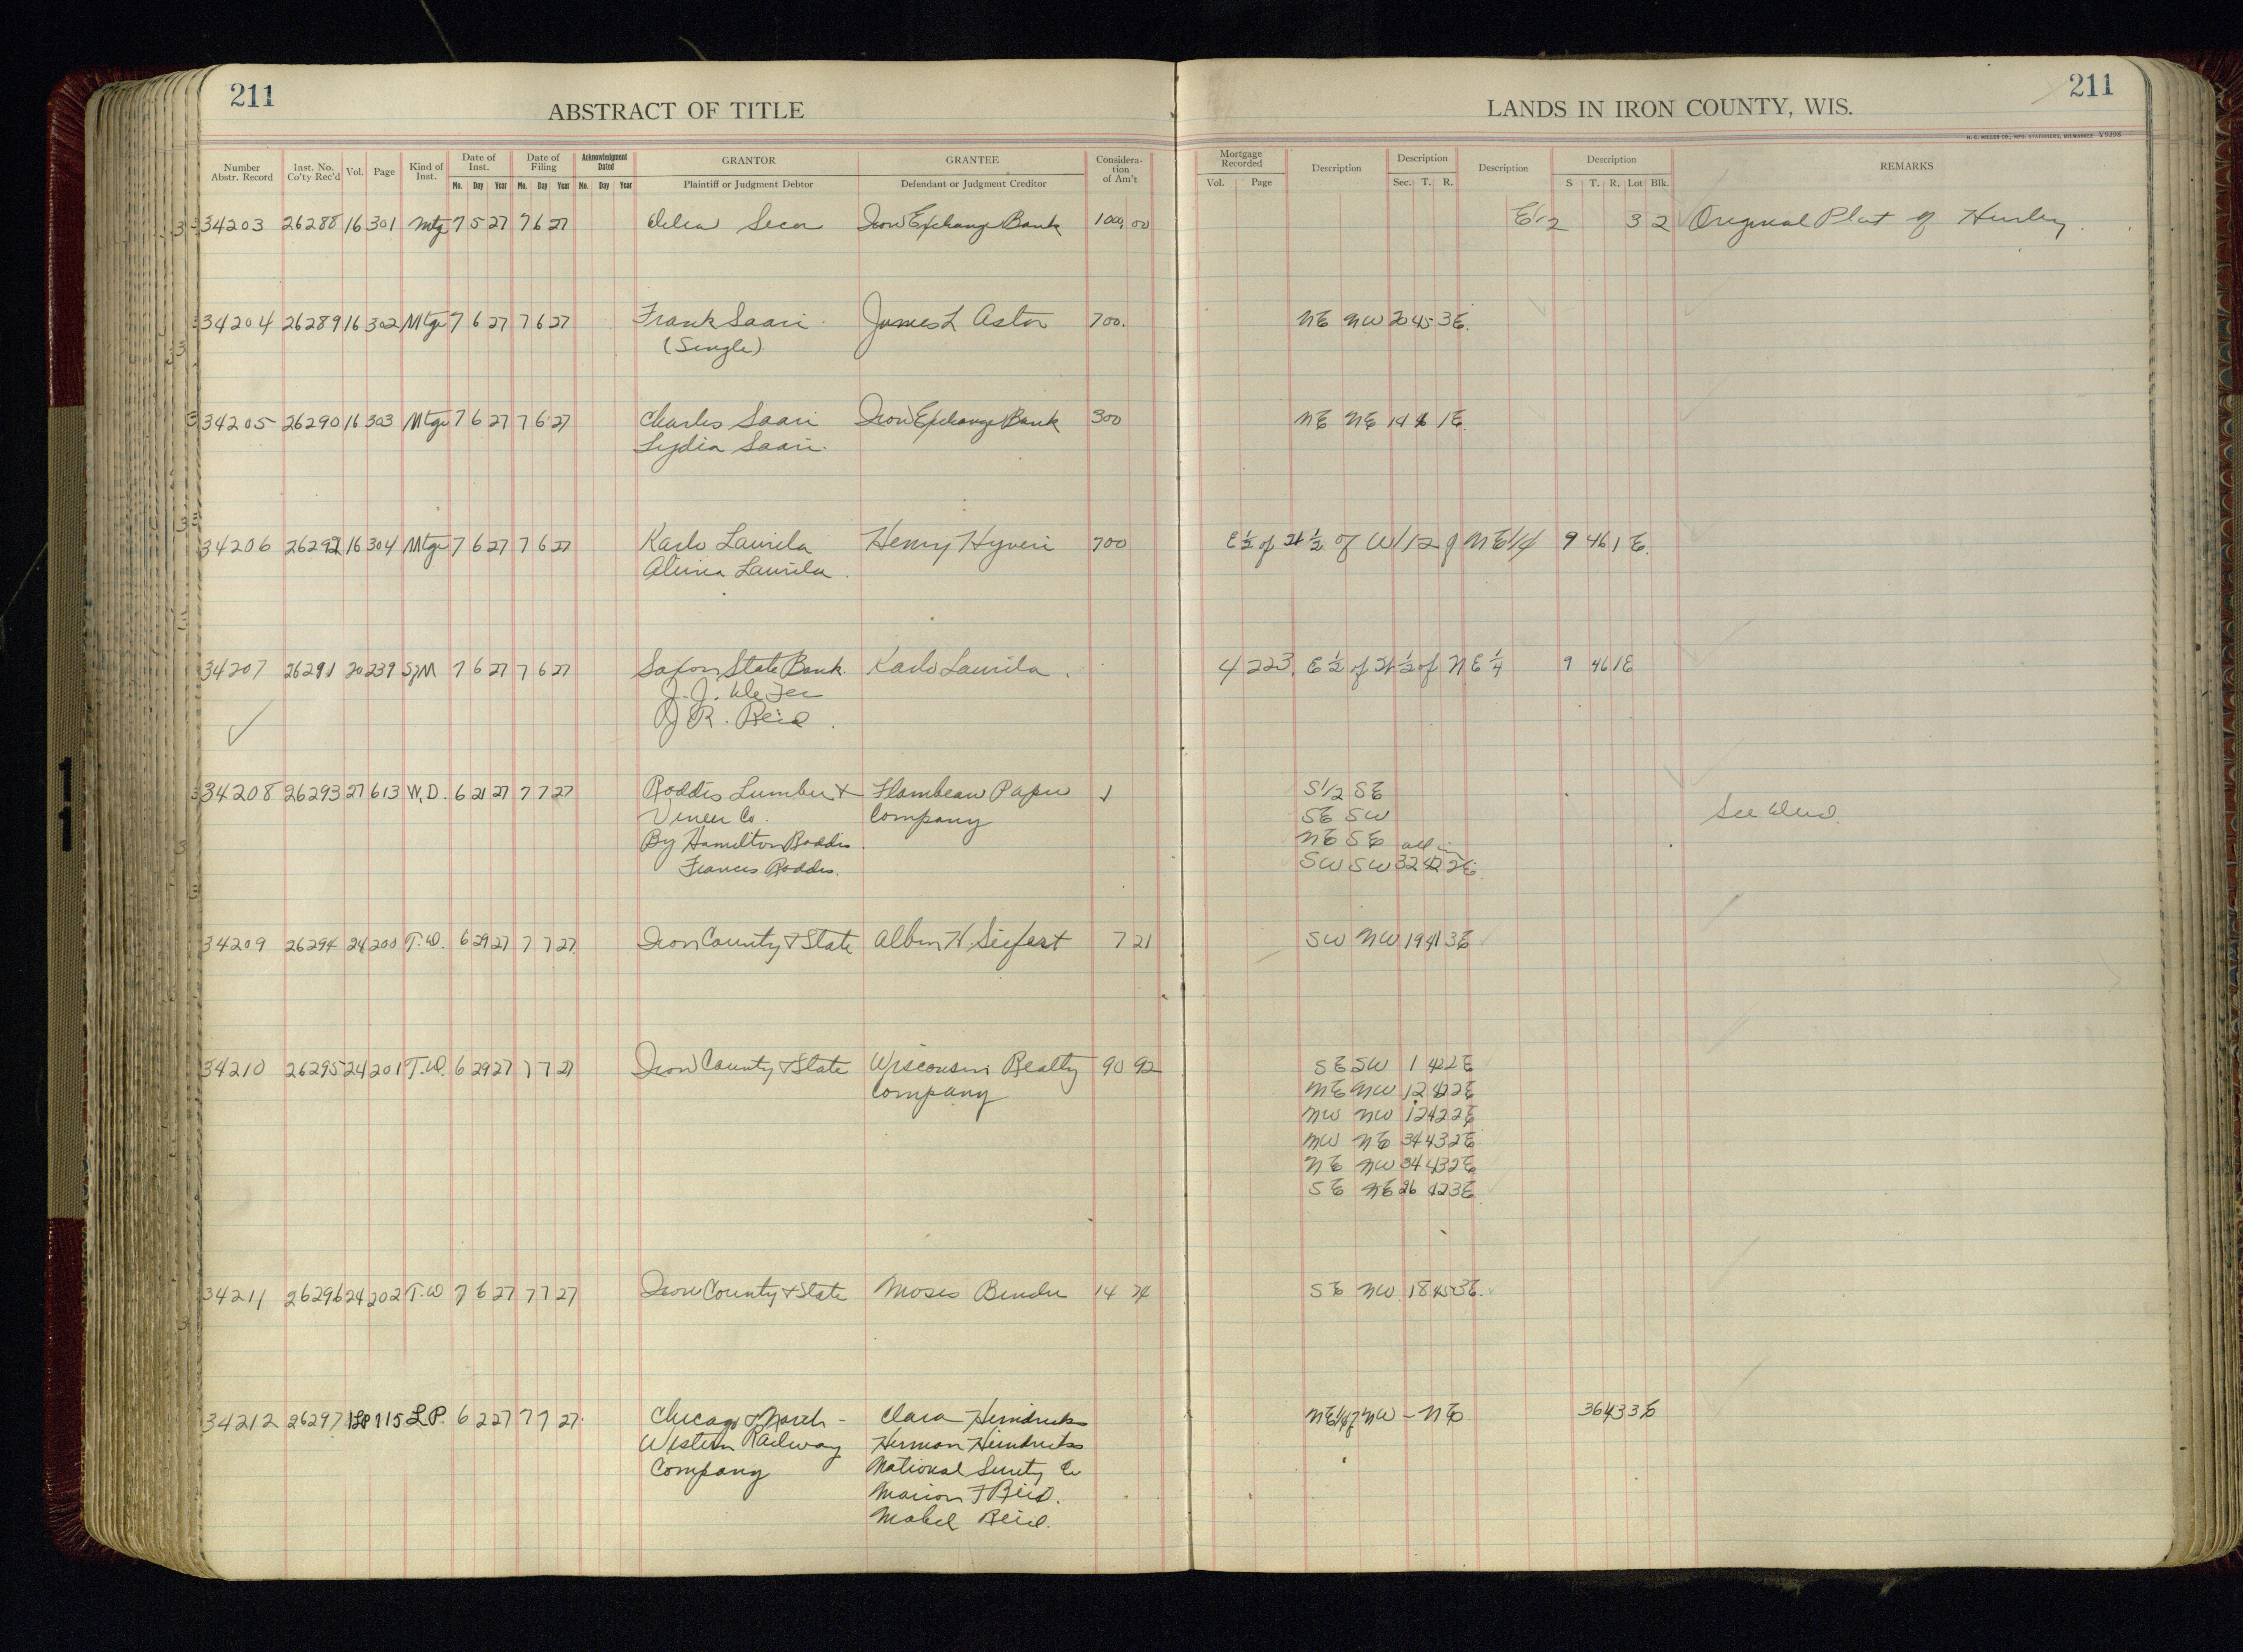 211
ABSTRACT OF TITLE
LANDS IN IRON COUNTY, WIS.
211
H. C. MILLER CO., MFG. STATIONERS, MILWAUKEE V9398
Number Abstr. Record Inst. No. Co'ty Rec'd Vol. Page Kind of Inst. Date of Inst. Mo. Day Year Date of Filing Mo. Day Year Acknowledgment Dated Mo. Day Year GRANTOR Plaintiff or Judgment Debtor GRANTEE Defendant or Judgment Creditor Considera-tion of Am't Mortgage Recorded Vol. Page Description Description Sec. T. R. Description Description S T. R. Lot Blk. REMARKS
34203 26288 16 301 Mtge 7 5 27 7 6 27 Iron Exchange Bank 1000 00 E1/2 3 2 Original Plat of Hurley
34204 26289 16 302 Mtge 7 6 27 7 6 27 Frank Saari James L Astor 700. NE NW 20 45 3E.
(Single)
34205 26290 16 303 Mtge 7 6 27 7 6 27 Charles Saari Iron Exchange Bank 300 NE NE 14 1E.
Lydia Saari.
34206 26292 16 304 Mtge 7 6 27 7 6 27 Karlo Laurila Henry Hyveri 700 E½ of ½ of W1/2 of NE1/4 9 46 1 E.
Laurila.
34207 26291 20 239 SM 7 6 27 7 6 27 Saxon State Bank. Karlo Laurila. 4 223. E½ of ½ of NE¼ 9 46 1E
J. J. Defer
J R. Reid.
34208 26293 27 613 W.D. 6 21 27 7 7 27 Roddis Lumber & Flambeau Paper 1 S1/2 SE
Veneer Co. Company SE SW See Deed.
By Hamilton Roddis NE SE all in
Frances Roddis. SW SW 32 42 2E.
34209 26294 24 200 T.D. 6 29 27 7 7 27 Iron County & State Albin H. Siefert 7 21 SW NW 19 41 3E
34210 26295 24 201 T.D. 6 29 27 7 7 27 Iron County & State Wisconsin Realty 90 92 SE SW 1 42 2E
Company NE NW 12 42 2E
NW NW 12 42 2E
NW NE 34 43 2E
NE NW 34 43 2E
SE NE 26 42 3E
34211 26296 24 202 T.D 7 6 27 7 7 27 Iron County & State Moses Bender 14 74 SE NW 18 45 3E.
34212 26297 1LP 115 L.P. 6 22 7 7 7 27. Chicago & North- Clara Heindricks NE1/4 of NW - NE 36 43 3E
Western Railway Herman Heindricks
Company National Surety Co
Marion F Reid.
Mabel Reid.